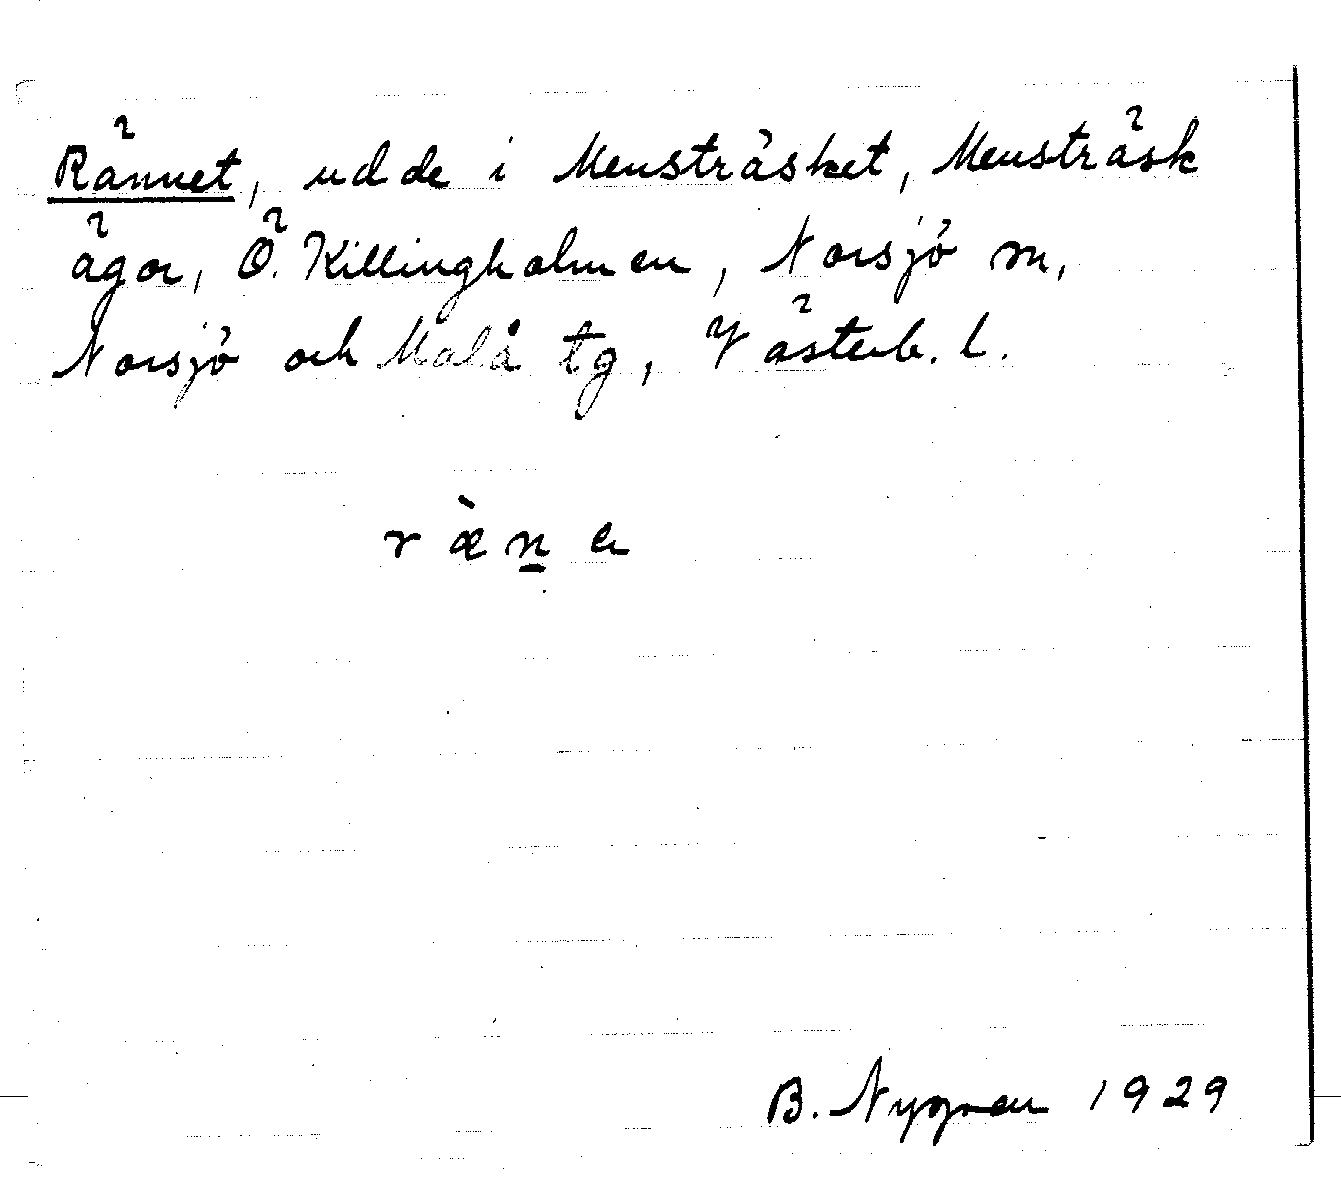 Rännet, udde i Mensträsket, Mensträsk
ägor, Ö. Killingholmen, Norsjö sn,
Norsjö och Malå tg, Västerb. l.
ræ̀n̲a
B. Nygren 1929